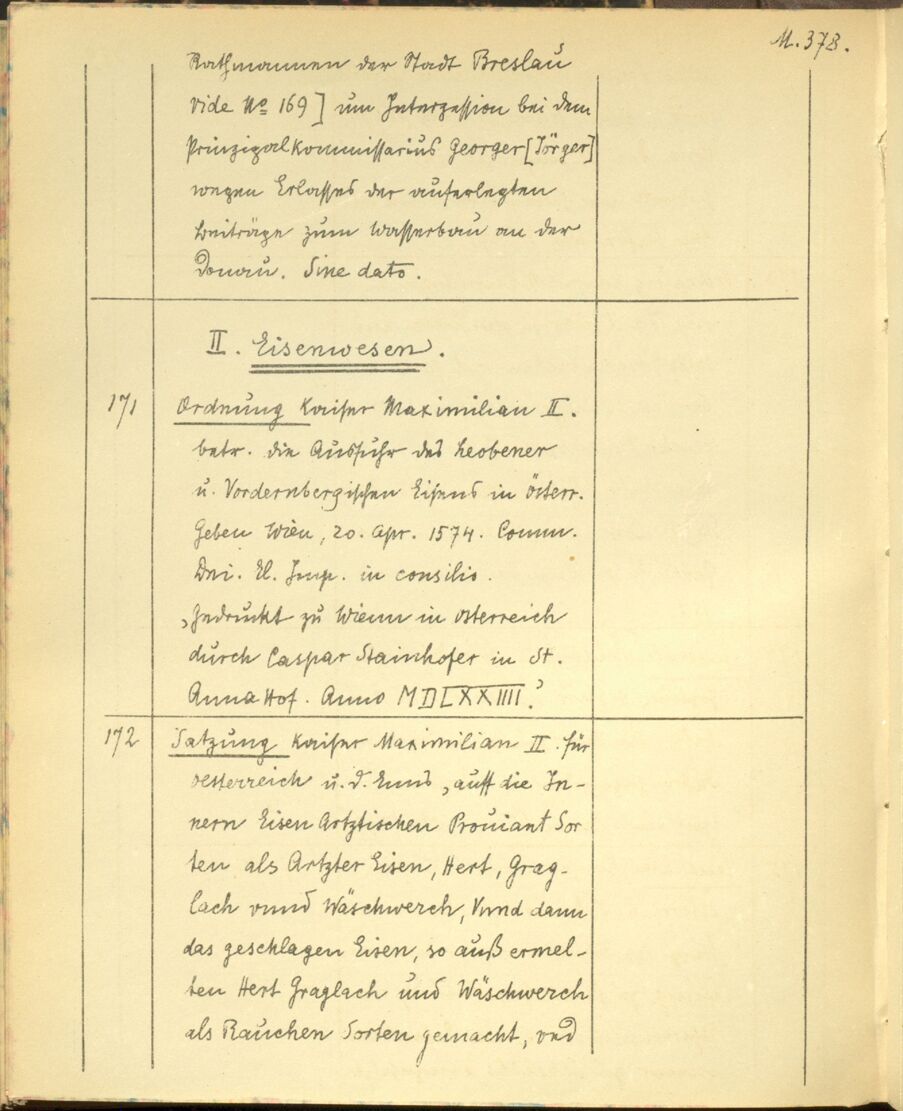 M. 378.
Rathmannen der Stadt Breslau
vide No 169] um Interzession bei dem
Prinzipalkommissarius Georger [Jörger]
wegen Erlasses der auferlegten
Beiträge zum Wasserbau an der
Donau. Sine dato.
II. Eisenwesen.
171 Ordnung Kaiser Maximilian II.
betr. die Ausfuhr des Leobener
u. Vordernbergischen Eisens in österr.
Geben Wien, 20. Apr. 1574. Comm.
Dni. El. Imp. in consilio.
„Gedruckt zu Wienn in Osterreich
durch Caspar Stainhofer in St.
Anna Hof. Anno MDLXXIIII."
172 Satzung Kaiser Maximilian II. für
Oesterreich u. d. Enns „auff die In-
nern Eisen Artztischen Prouiant Sor
ten als Artzter Eisen, Hert, Grag-
lach vnnd Wäschwerch, Vnnd dann
das geschlagen Eisen, so auß ermel-
ten Hert Graglach und Wäschwerch
als Rauchen Sorten gemacht, vnd